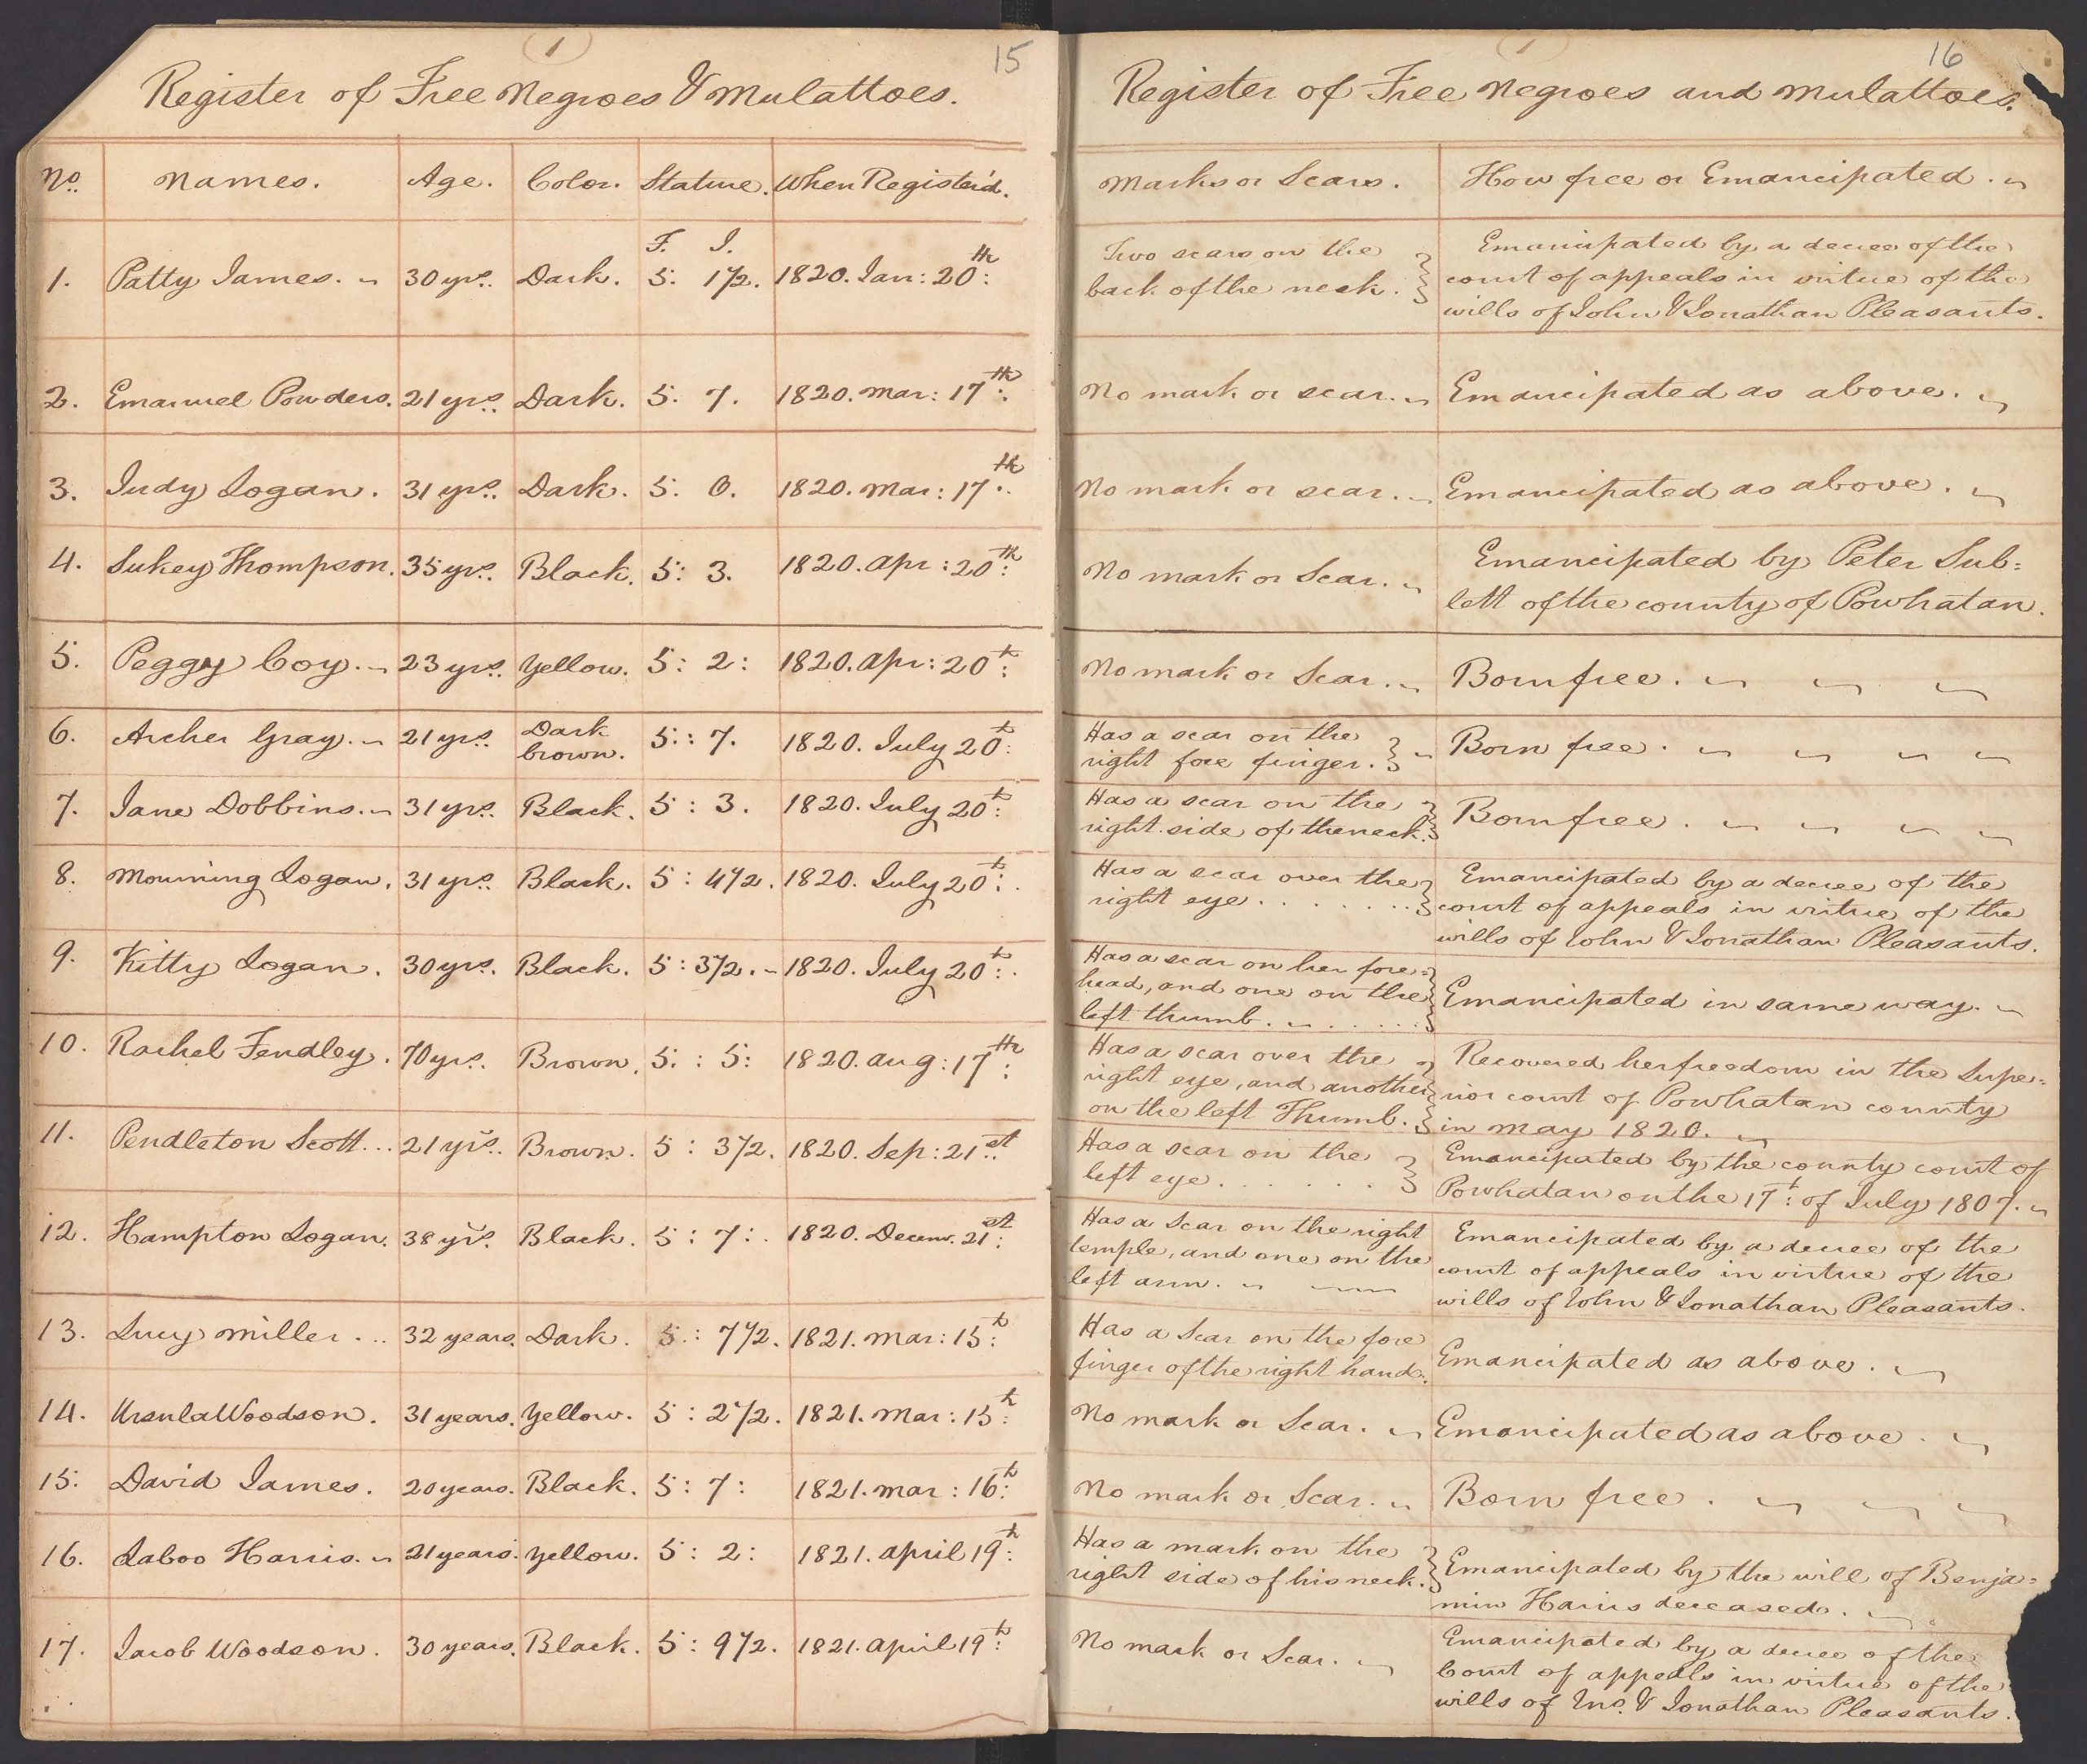 1
15
Register of Free Negroes & Mulattoes.
No. Names. Age. Color. Stature. When Register'd.
F. I.
1. Patty James. 30 yrs. Dark. 5: 1½. 1820. Jan: 20th:
2. Emanuel Powders. 21 yrs. Dark. 5. 7. 1820. Mar: 17th:
3. Judy Logan. 31 yrs. Dark. 5. 0. 1820. Mar: 17th
4. Sukey Thompson. 35 yrs. Black. 5: 3. 1820. Apr: 20th:
5. Peggy Coy. 23 yrs. Yellow. 5: 2: 1820. Apr: 20th:
6. Archer Gray. 21 yrs. Dark brown. 5: 7. 1820. July 20th:
7. Jane Dobbins. 31 yrs. Black. 5: 3. 1820. July 20th:
8. Mourning Logan. 31 yrs. Black. 5: 4½. 1820. July 20th:
9. Kitty Logan. 30 yrs. Black. 5: 3½. 1820. July 20th:
10. Rachel Fendley. 70 yrs. Brown. 5: 5: 1820. Aug: 17th:
11. Pendleton Scott... 21 yrs. Brown. 5: 3½. 1820. Sep: 21st
12. Hampton Logan. 38 yrs. Black. 5: 7: 1820. Decemr. 21st:
13. Lucy Miller... 32 years. Dark. 5: 7½. 1821. Mar: 15th:
14. Ursula Woodson. 31 years. Yellow. 5: 2½. 1821. Mar: 15th:
15. David James. 20 years. Black. 5: 7: 1821. Mar: 16th:
16. Laboo Harris. 21 years. Yellow. 5: 2: 1821. April 19th:
17. Jacob Woodson. 30 years. Black. 5: 9½. 1821. April 19th:
1
16
Register of Free Negroes and Mulattoes.
Marks or Scars. How free or Emancipated.
Two scars on the
back of the neck.
Emancipated by a decree of the
court of appeals in virtue of the
wills of John & Jonathan Pleasants.
No mark or scar. Emancipated as above.
No mark or scar. Emancipated as above.
No mark or Scar.
Emancipated by Peter Sub=
lett of the county of Powhatan.
No mark or Scar. Born free.
Has a scar on the
right fore finger.
Born free.
Has a scar on the
right side of the neck.
Born free.
Has a scar over the
right eye.......
Emancipated by a decree of the
court of appeals in virtue of the
wills of John & Jonathan Pleasants.
Has a scar on her fore=
head, and one on the
left thumb.
Emancipated in same way.
Has a scar over the
right eye, and another
on the left Thumb.
Recovered her freedom in the Supe=
rior court of Powhatan county
in May 1820.
Has a scar on the
left eye......
Emancipated by the county court of
Powhatan on the 17t: of July 1807.
Has a Scar on the right
temple, and one on the
left arm.
Emancipated by a decree of the
court of appeals in virtue of the
wills of John & Jonathan Pleasants.
Has a Scar on the fore
finger of the right hand.
Emancipated as above.
No mark or Scar. Emancipated as above.
No mark or Scar. Born free.
Has a mark on the
right side of his neck.
Emancipated by the will of Benja=
min Harris deceased.
No mark or Scar.
Emancipated by a decree of the
Court of appeals in virtue of the
wills of Jno. & Jonathan Pleasants.